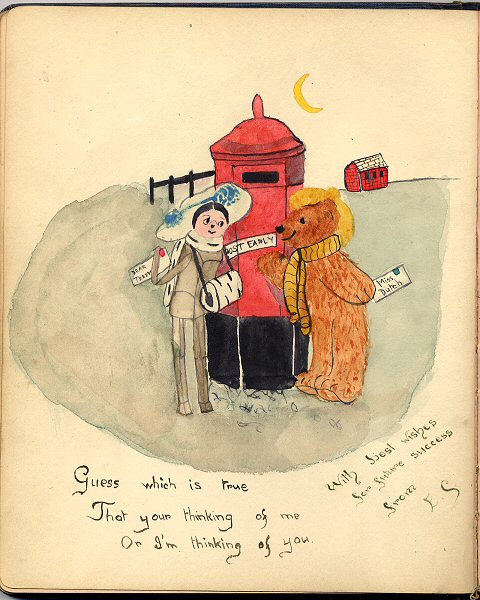 POST EARLY
DEAR
TEDDY
Miss
Dutch
Guess which is true
That your thinking of me
Or I'm thinking of you.
With best wishes
for future success
from E S